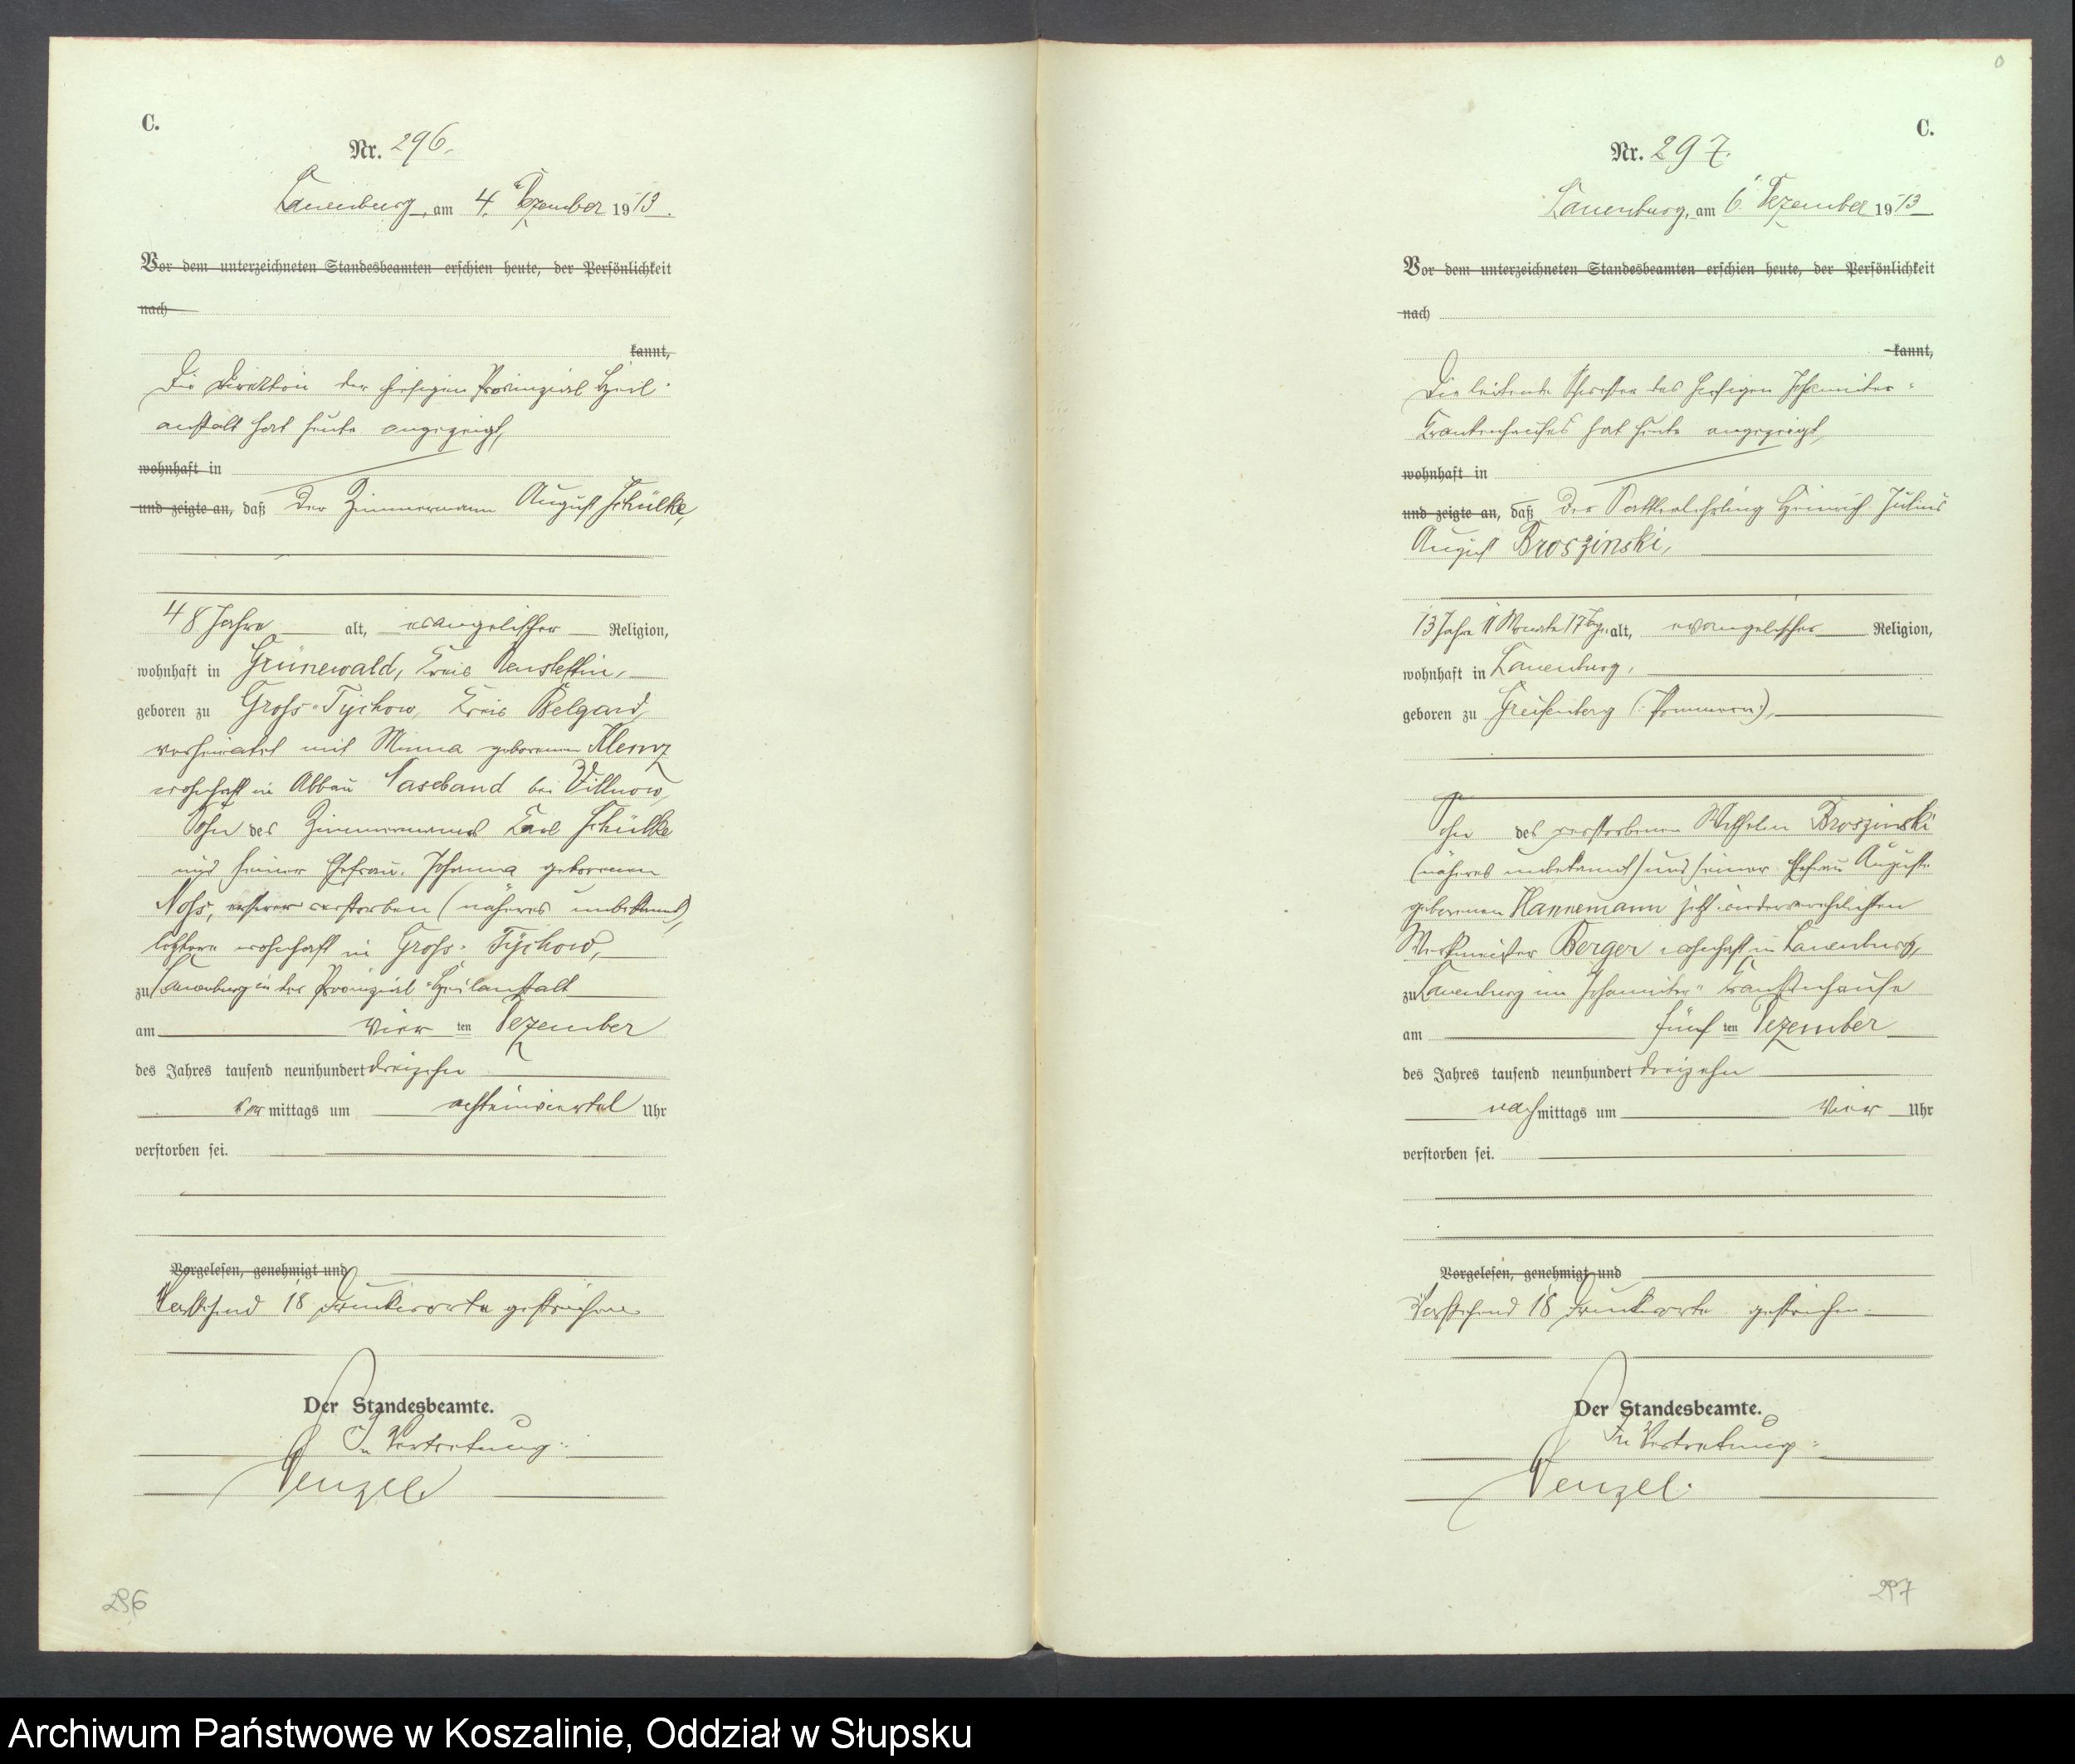 C.
Nr. 296.
Lauenburg, am 4. Dezember 1913.
Vor dem unterzeichneten Standesbeamten erschien heute, der Persönlichkeit
nach
kannt,
Die Direktion der hiesigen Provinzial Heil-
anstalt hat heute angezeigt,
wohnhaft in
und zeigte an, daß der Zimmermann August Schülke,
48 Jahre alt, evangelischer Religion,
wohnhaft in Grünewald, Kreis Neustettin,
geboren zu Gross-Tychow, Kreis Belgard,
verheiratet mit Minna geborenen Klemz
wohnhaft in Abbau Naseband bei Villnow,
Sohn des Zimmermanns Karl Schülke
und seiner Ehefrau Johanna geborenen
Noss, ersterer verstorben (näheres unbekannt),
letztere wohnhaft in Gross-Tychow,
zu Lauenburg in der Provinzial-Heilanstalt
am vier ten Dezember
des Jahres tausend neunhundert dreizehn
vor mittags um achteinviertel Uhr
verstorben sei.
Vorgelesen, genehmigt und
Vorstehend 18 Druckworte gestrichen.
Der Standesbeamte.
In Vertretung:
Wenzel.
296
C.
Nr. 297.
Lauenburg, am 6. Dezember 1913.
Vor dem unterzeichneten Standesbeamten erschien heute, der Persönlichkeit
nach
kannt,
Die leitende Schwester des hiesigen Johanniter-
Krankenhauses hat heute angezeigt,
wohnhaft in
und zeigte an, daß der Sattlerlehrling Heinrich Julius
August Broszinski,
13 Jahre 11 Monate 17 Tage alt, evangelischer Religion,
wohnhaft in Lauenburg,
geboren zu Greifenberg (: Pommern:),
Sohn des verstorbenen Wilhelm Broszinski
(näheres unbekannt) und seiner Ehefrau Auguste
geborenen Hannemann jetzt wiederverehelichten
Werkmeister Berger wohnhaft in Lauenburg,
zu Lauenburg im Johanniter-Krankenhause
am fünf ten Dezember
des Jahres tausend neunhundert dreizehn
nach mittags um vier Uhr
verstorben sei.
Vorgelesen, genehmigt und
Vorstehend 18 Druckworte gestrichen.
Der Standesbeamte.
In Vertretung:
Wenzel.
297
Archiwum Państwowe w Koszalinie, Oddział w Słupsku